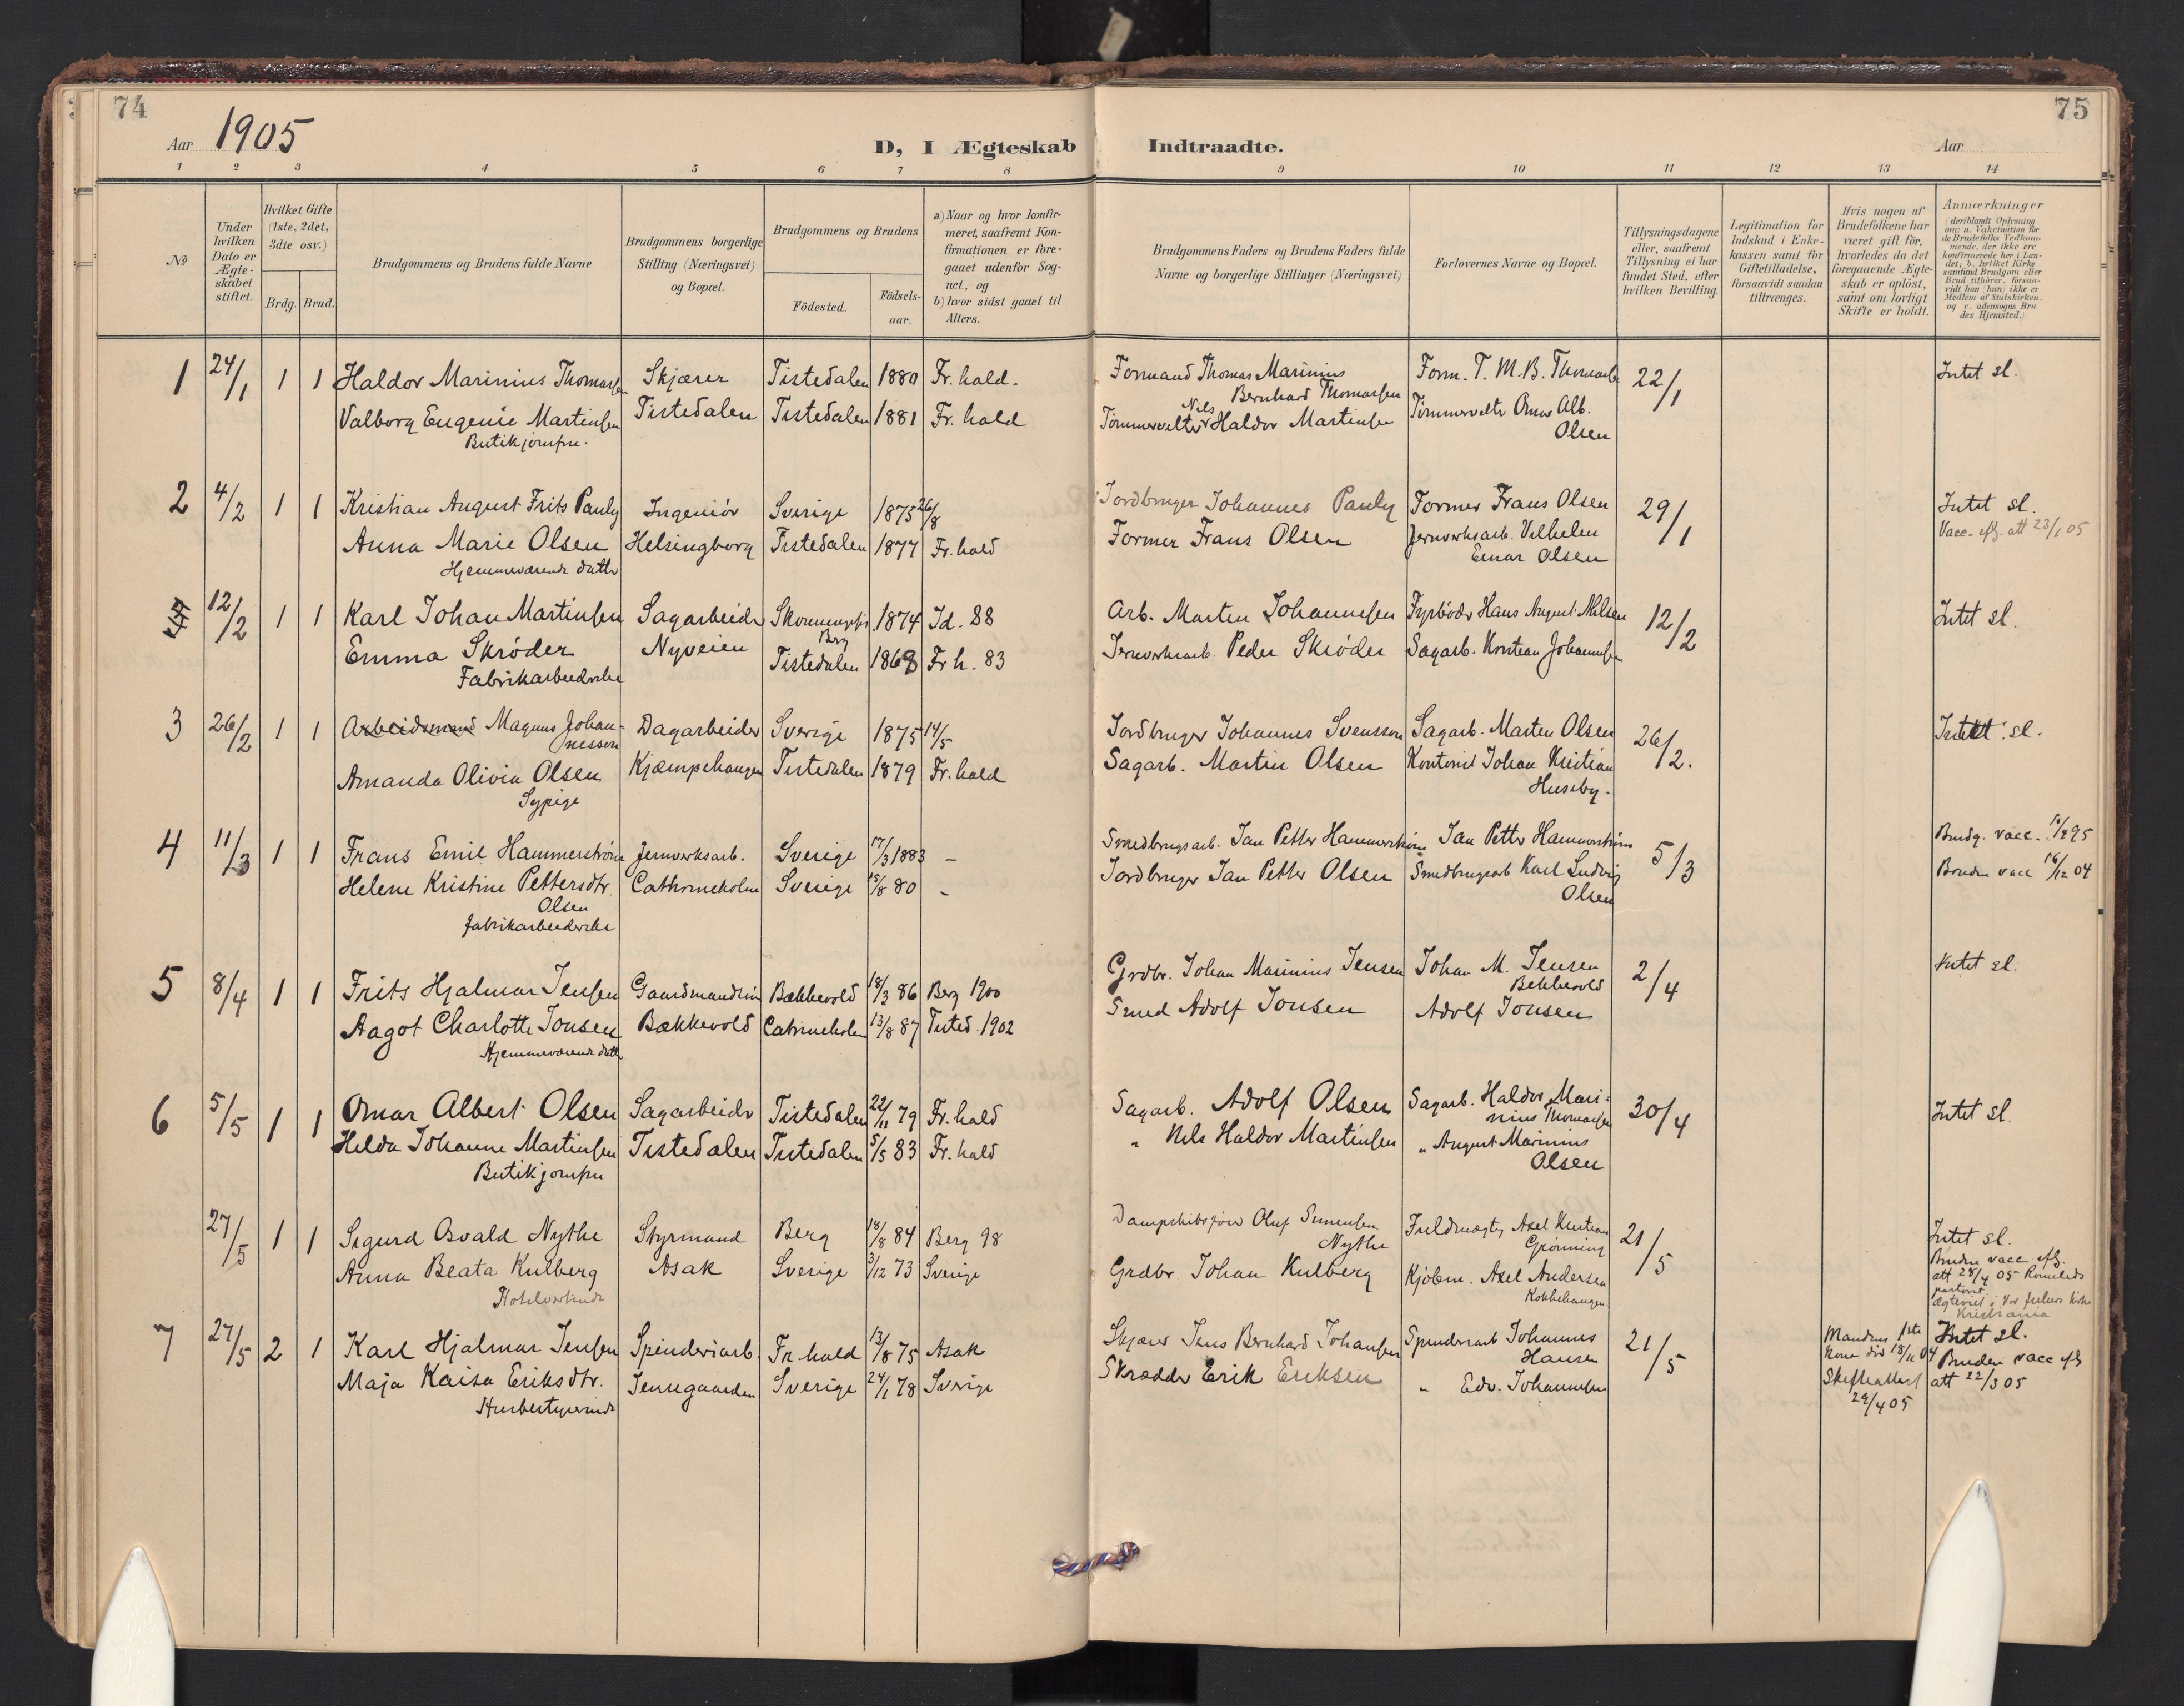 74
75
Aar 1905
D, I Ægteskab Indtraadte.
Aar
1 2 3 4 5 6 7 8 9 10 11 12 13 14
№
Under hvilken Dato er Ægteskabet stiftet.
Hvilket Gifte (1ste, 2det, 3die osv.)
Brdg. Brud.
Brudgommens og Brudens fulde Navne
Brudgommens borgerlige Stilling (Næringsvei) og Bopæl.
Brudgommens og Brudens
Födested.
Födselsaar.
a) Naar og hvor konfirmeret, saafremt Konfirmationen er foregaaet udenfor Sognet, og
b) hvor sidst gaaet til Alters.
Brudgommens Faders og Brudens Faders fulde Navne og borgerlige Stillinger (Næringsvei)
Forlovernes Navne og Bopæl.
Tillysningsdagene eller, saafremt Tillysning ei har fundet Sted, efter hvilken Bevilling.
Legitimation for Indskud i Enkekassen samt for Giftetilladelse, forsaavidt saadan tiltrænges.
Hvis nogen af Brudefolkene har været gift för, hvorledes da det foregaaende Ægteskab er oplöst, samt om lovligt Skifte er holdt.
Anmærkninger
(deriblandt Oplysning om: a. Vakcination for de Brudefolks Vedkommende, der ikke ere konfirmerede her i Landet; b. hvilket Kirkesamfund Brudgom eller Brud tilhörer, forsaavidt han (hun) ikke er Medlem af Statskirken, og c. udensogns Brudes Hjemsted.)
1 24/1 1 1 Haldor Marinius Thomassen Skjærer Tistedalen 1880 Fr. hald. Formand Thomas Marinius Form. T. M. B. Thomassen 22/1 Intet sl.
Bernhard Thomassen
Valborg Eugenie Martinsen Tistedalen Tistedalen 1881 Fr. hald Nils Tømmervelter Haldor Martinsen Tömmervelter Omar Alb.
Butikjomfru. Olsen
2 4/2 1 1 Kristian August Frits Pauly Ingeniör Sverige 1875 26/8 Jordbruger Johannes Pauly Former Frans Olsen 29/1 Intet sl.
Anna Marie Olsen Helsingborg Tistedalen 1877 Fr. hald Former Frans Olsen Jernverksarb. Vilhelm Vacc. efg. att 23/1 05
Hjemmeværende datter Einar Olsen
12/2 1 1 Karl Johan Martinsen Sagarbeider 1874 Id. 88 Arb. Martin Johannesen Fyrböder Hans August Nilsen 12/2 Intet sl.
Berg
Emma Skröder Nyveien Tistedalen 1868 Fr h. 83 Jernverksarb. Peder Skröder Sagarb. Johannesen
Fabrikarbeiderske
3 26/2 1 1 Arbeidsmand Magnus Johannesson Dagarbeider Sverige 1875 14/5 Jordbruger Johannes Svensson Sagarb. Martin Olsen 26/2. Intet sl.
Amanda Olivia Olsen Kjæmpehaugen Tistedalen 1879 Fr. hald Sagarb. Martin Olsen Kontorist Johan Kristian
Sypige Huseby.
4 11/3 1 1 Frans Emil Hammerström Jernverksarb. Sverige 17/3 1883 – Smedbrugsarb. Jan Petter Hammerström Jan Petter Hammerström 5/3 Brudg. vacc. 95
Helene Kristine Pettersdtr. Cathrineholm Sverige 15/8 80 – Jordbruger Jan Petter Olsen Smedbrugsarb Karl Ludvig Bruden vacc 16/12 04
Olsen Olsen
fabrikarbeiderske
5 8/4 1 1 Frits Hjalmar Jensen Gaardmandssön Bækkevold 18/3 86 Berg 1900 Grdbr. Johan Marinius Jensen Johan M. Jensen 2/4 Intet sl.
Bekkevold
Aagot Charlotte Jonsen Bækkevold Catrineholm 13/8 87 Tisted. 1902 Smed Adolf Jonsen Adolf Jonsen
Hjemmeværende datter
6 5/5 1 1 Omar Albert Olsen Sagarbeider Tistedalen 22/11 79 Fr. hald Sagarb. Adolf Olsen Sagarb. Haldor Marinius Thomassen 30/4 Intet sl.
Helda Johanne Martinsen Tistedalen Tistedalen 5/5 83 Fr. hald " Nils Haldor Martinsen " August Marinius
Butikjomfru Olsen
27/5 1 1 Sigurd Osvald Nythe Styrmand Berg 18/8 84 Berg 98 Oluf Simensen Fuldmægtig Axel Kristian 21/5 Intet sl.
Nythe Grönning
Anna Beata Kulberg Asak Sverige 3/12 73 Sverige Grdbr. Johan Kulberg Kjöbm. Axel Andersen Bruden vacc efg.
Kokkehaugen att 28/4 05
Hotelværtinde ægteviet i Vor frelsers kirke
Kristiania
7 27/5 2 1 Karl Hjalmar Jensen Spinderiarb. Fr. hald 13/8 75 Asak Skjærer Jens Bernhard Johansen Spinderiarb Johannes 21/5 Mandens 1ste Intet sl.
Hansen kone död 18/11 04
Maja Kaisa Eriksdtr. Sverige 24/1 78 Sverige Skrædder Erik Eriksen " Edv. Johannesen Skifteattest Bruden vacc efg
Husbestyrerinde 29/4 05 att 22/3 05